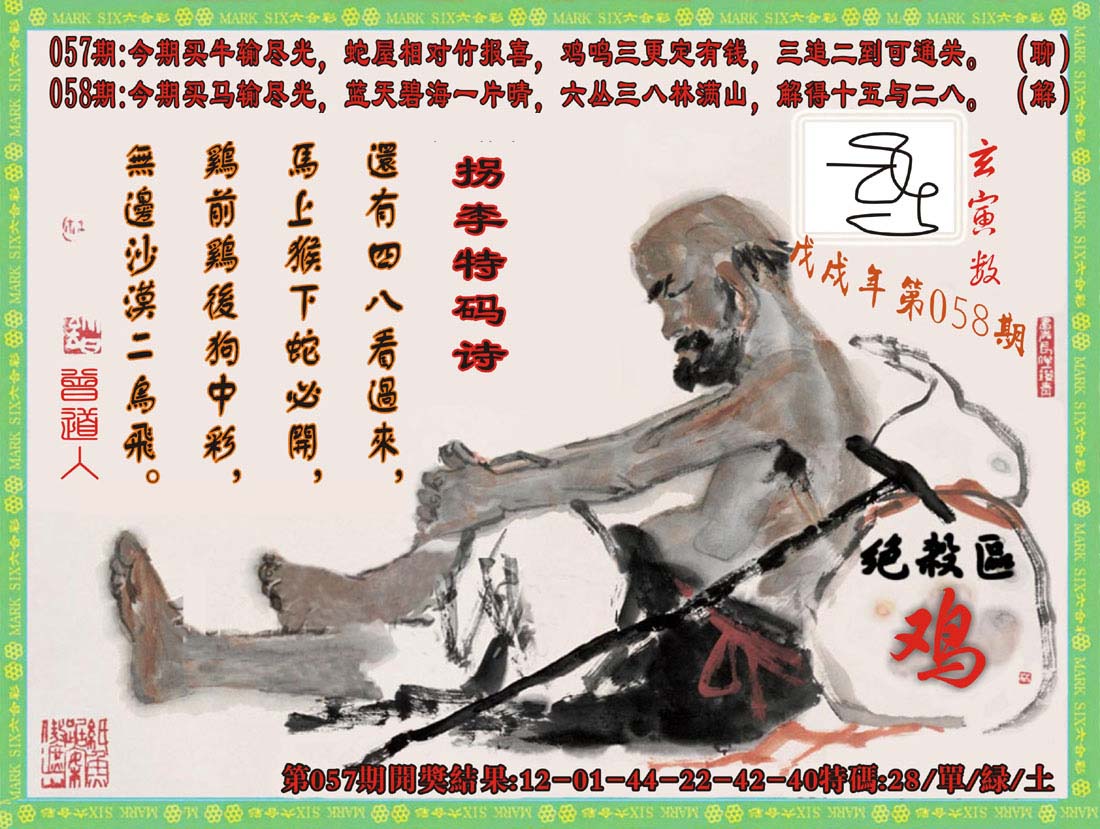 MARK SIX六合彩
057期:今期买牛输尽光，蛇屋相对竹报喜，鸡鸣三更定有钱，三追二到可通关。（聊）
058期:今期买马输尽光，蓝天碧海一片晴，六丛三八林满山，解得十五与二八。（解）
玄寅数
戊戌年第058期
拐李特码诗
還有四八看過來，
馬上猴下蛇必開，
鷄前鷄後狗中彩，
無邊沙漠二鳥飛。
曾道人
绝殺區
鸡
第057期開獎結果:12-01-44-22-42-40特碼:28/單/緑/土